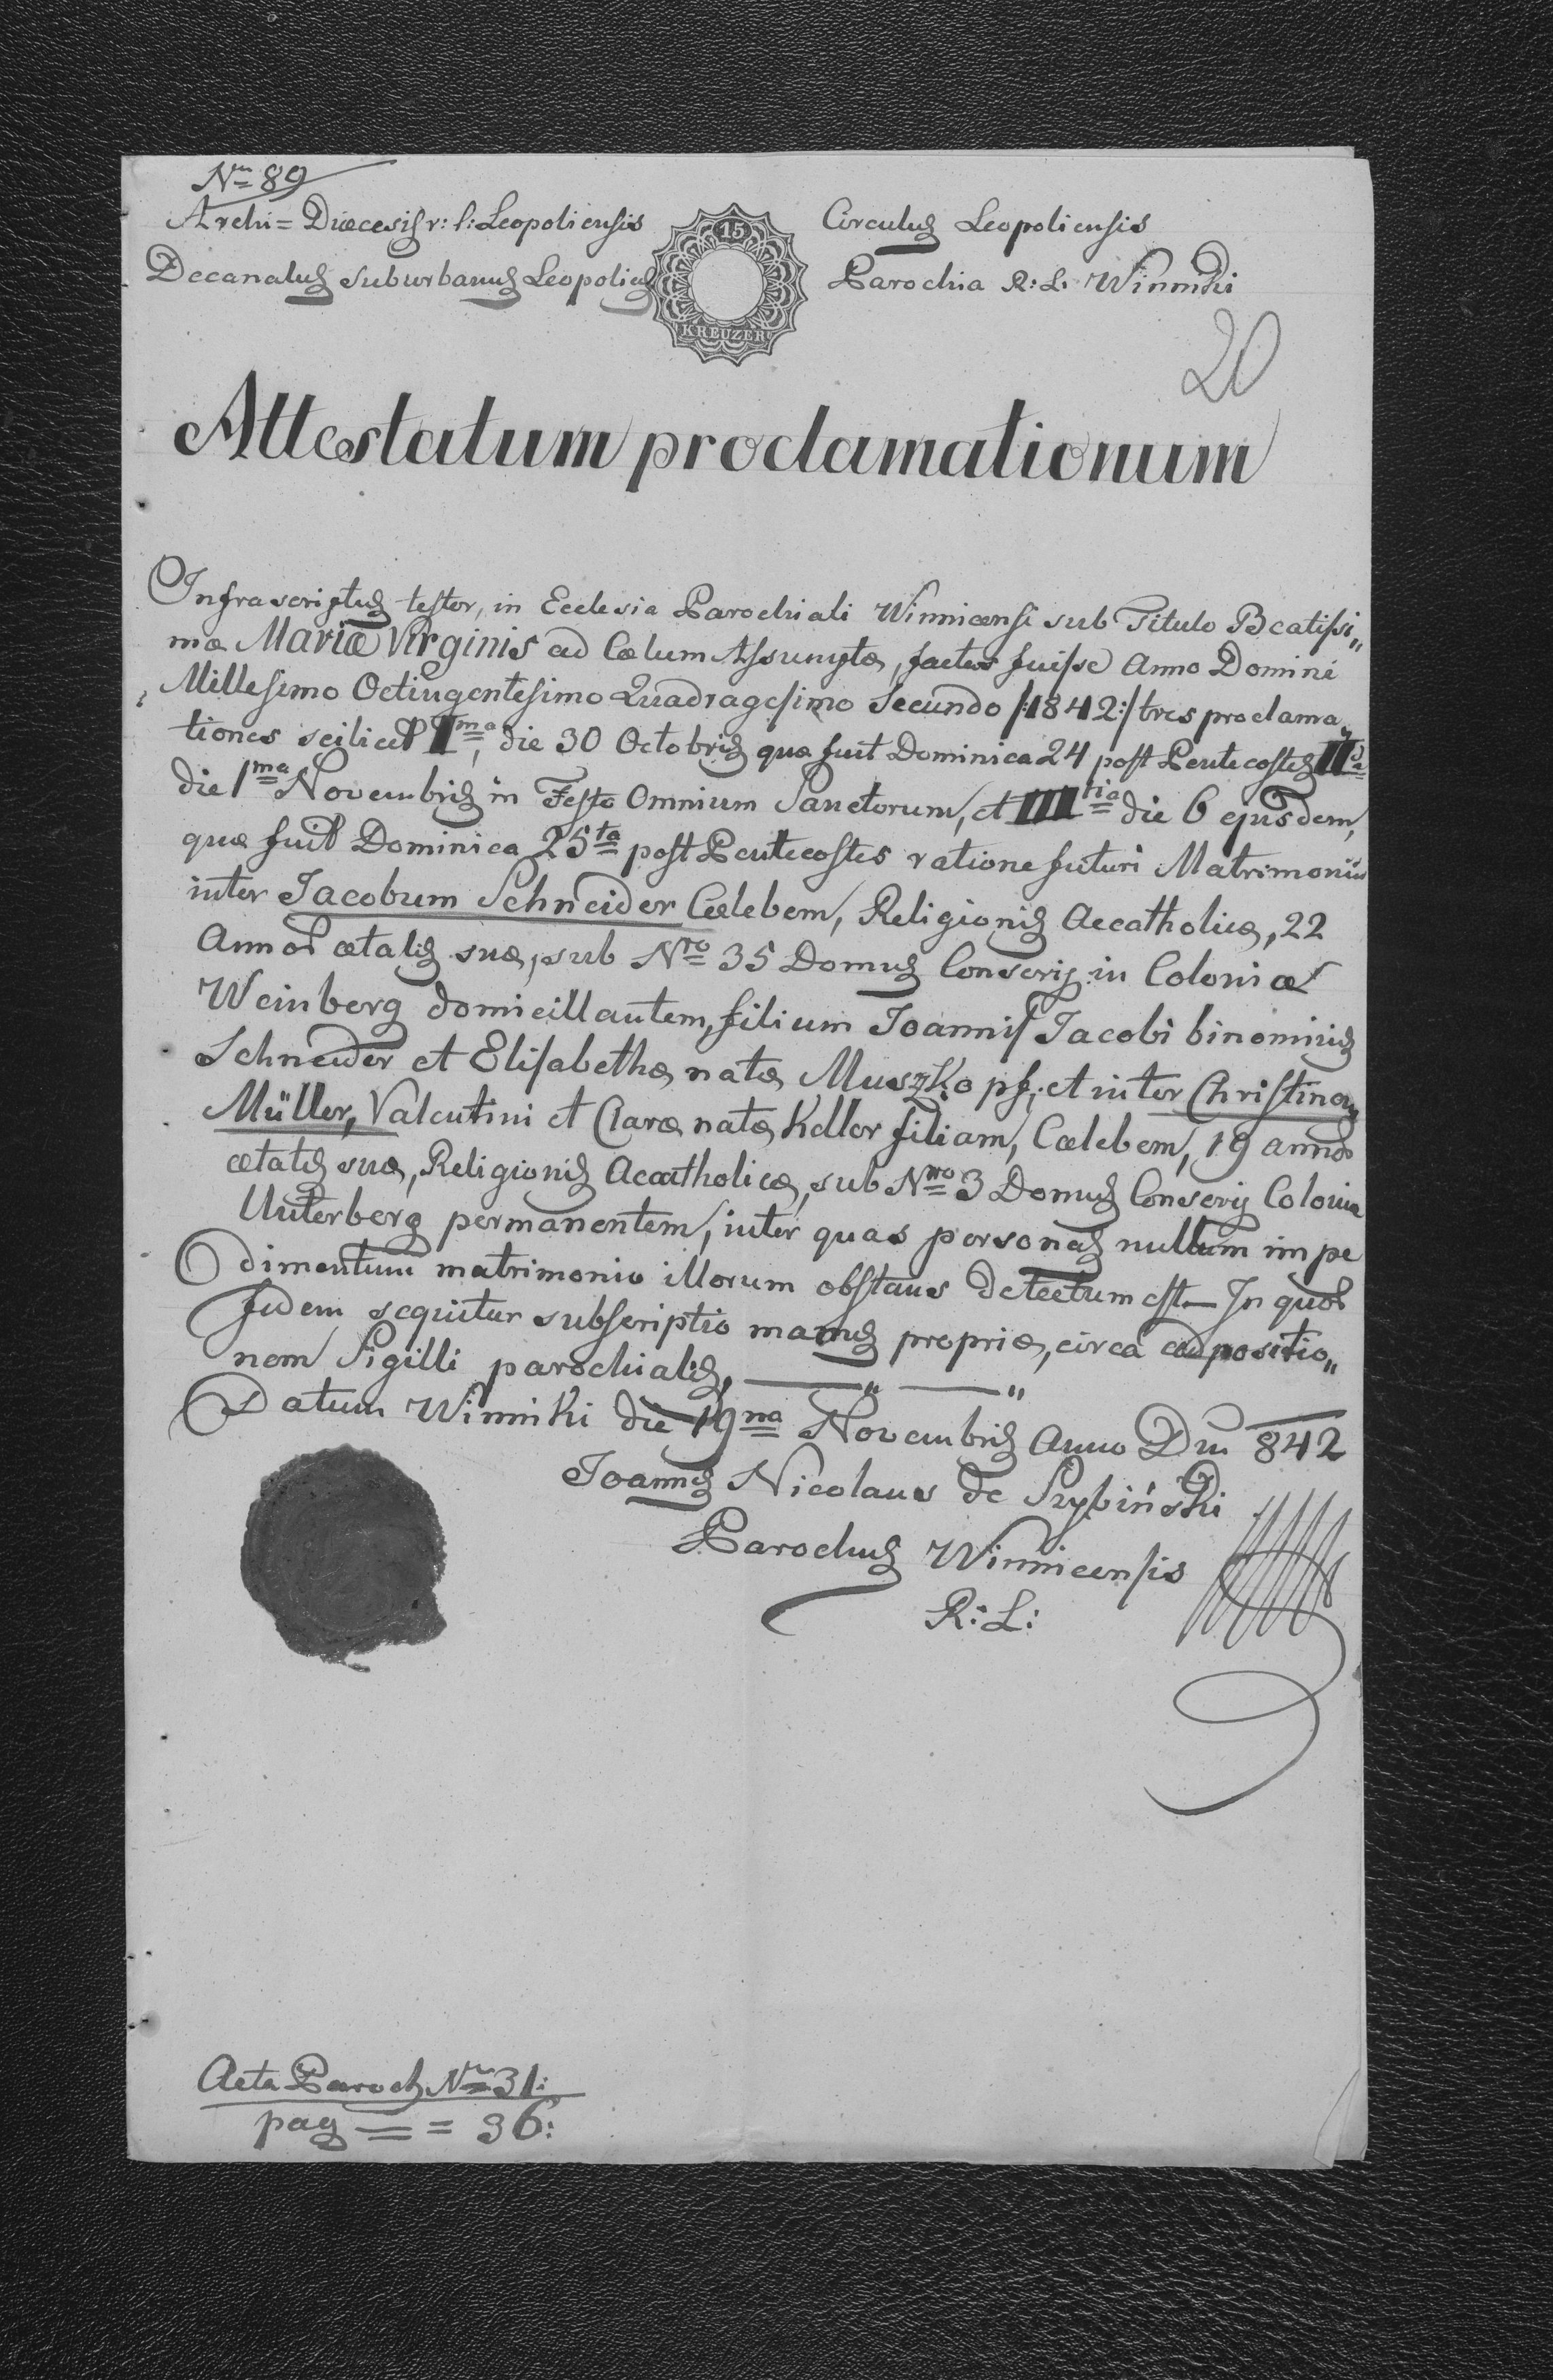 Nro 89
Archi=Diœcesis r: l: Leopoliensis
Circulus Leopoliensis
Decanatus suburbanus Leopolien
Parochia R: L. Winniki
15
KREUZER
20
Attestatum proclamationum
Infrascriptus testor, in Ecclesia Parochiali Winnicensi sub Titulo Beatissi„
mæ Mariæ Virginis ad Cœlum Assumptæ, factas fuisse Anno Domini
Millesimo Octingentesimo Quadragesimo Secundo /:1842:/ tres proclama„
tiones scilicet Ima, die 30 Octobris quæ fuit Dominica 24 post Pentecostes IIda
die 1ma Novembris in Festo Omnium Sanctorum, et IIItia die 6 ejusdem,
quæ fuit Dominica 25ta post Pentecostes ratione futuri Matrimonii
inter Jacobum Schneider Cœlebem, Religionis Accatholicæ, 22
Annor ætatis suæ, sub Nro 35 Domus Conscrip. in Coloniæ
Weinberg domicillantem, filium Joannis Jacobi binominis
Schneider et Elisabethæ natæ Muszkopf; et inter Christinam
Müller, Valentini et Claræ natæ Keller filiam, Cœlebem, 19 annor
ætatis suæ, Religionis Acatholicæ, sub Nro 3 Domus Conscrip Coloniæ
Unterberg permanentem, inter quas personas nullum impe
dimentum matrimonio illorum obstans detectum est — In quor
fidem sequitur subscriptio manus propriæ, circa adpositio„
nem Sigilli parochialis, ——"——"
Datum Winniki die 19na Novembris Anno Dni 842
Joannes Nicolaus de Przybiński
Parochus Winnicensis
R: L:
Acta Paroch Nro 31:
pag == 36: